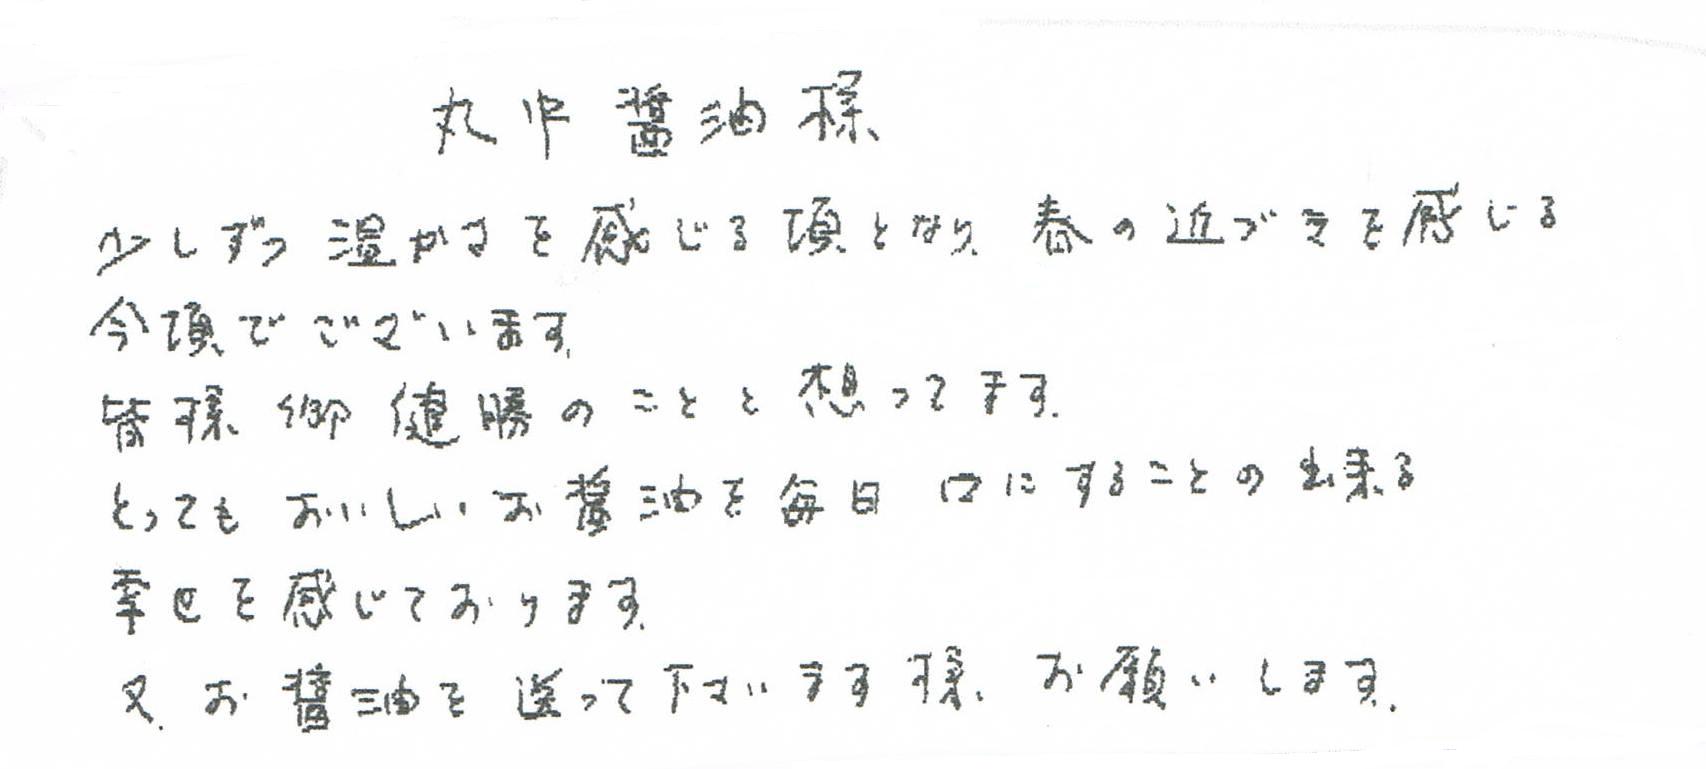 丸中醤油様
少しずつ温かさを感じる頃となり、春の近づきを感じる
今頃でございます。
皆様御健勝のことと想ってます。
とってもおいしいお醤油を毎日口にすることの出来る
幸せを感じております。
又、お醤油を送って下さいます様、お願いします。